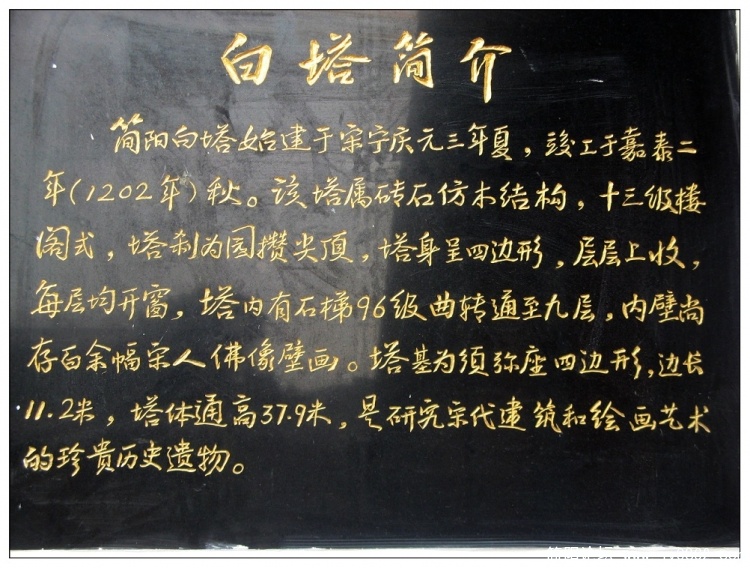 白塔简介
简阳白塔始建于宋宁庆元三年夏，竣工于嘉泰二
年(1202年)秋。该塔属砖石仿木结构，十三级搂
阁式，塔刹为园攒尖顶，塔身呈四边形，层层上收，
每层均开窗，塔内有石梯96级曲转通至九层，内壁尚
存百余幅宋人佛像壁画。塔基为须弥座四边形，边长
11.2米，塔体通高37.9米，是研究宋代建筑和绘画艺术
的珍贵历史遗物。